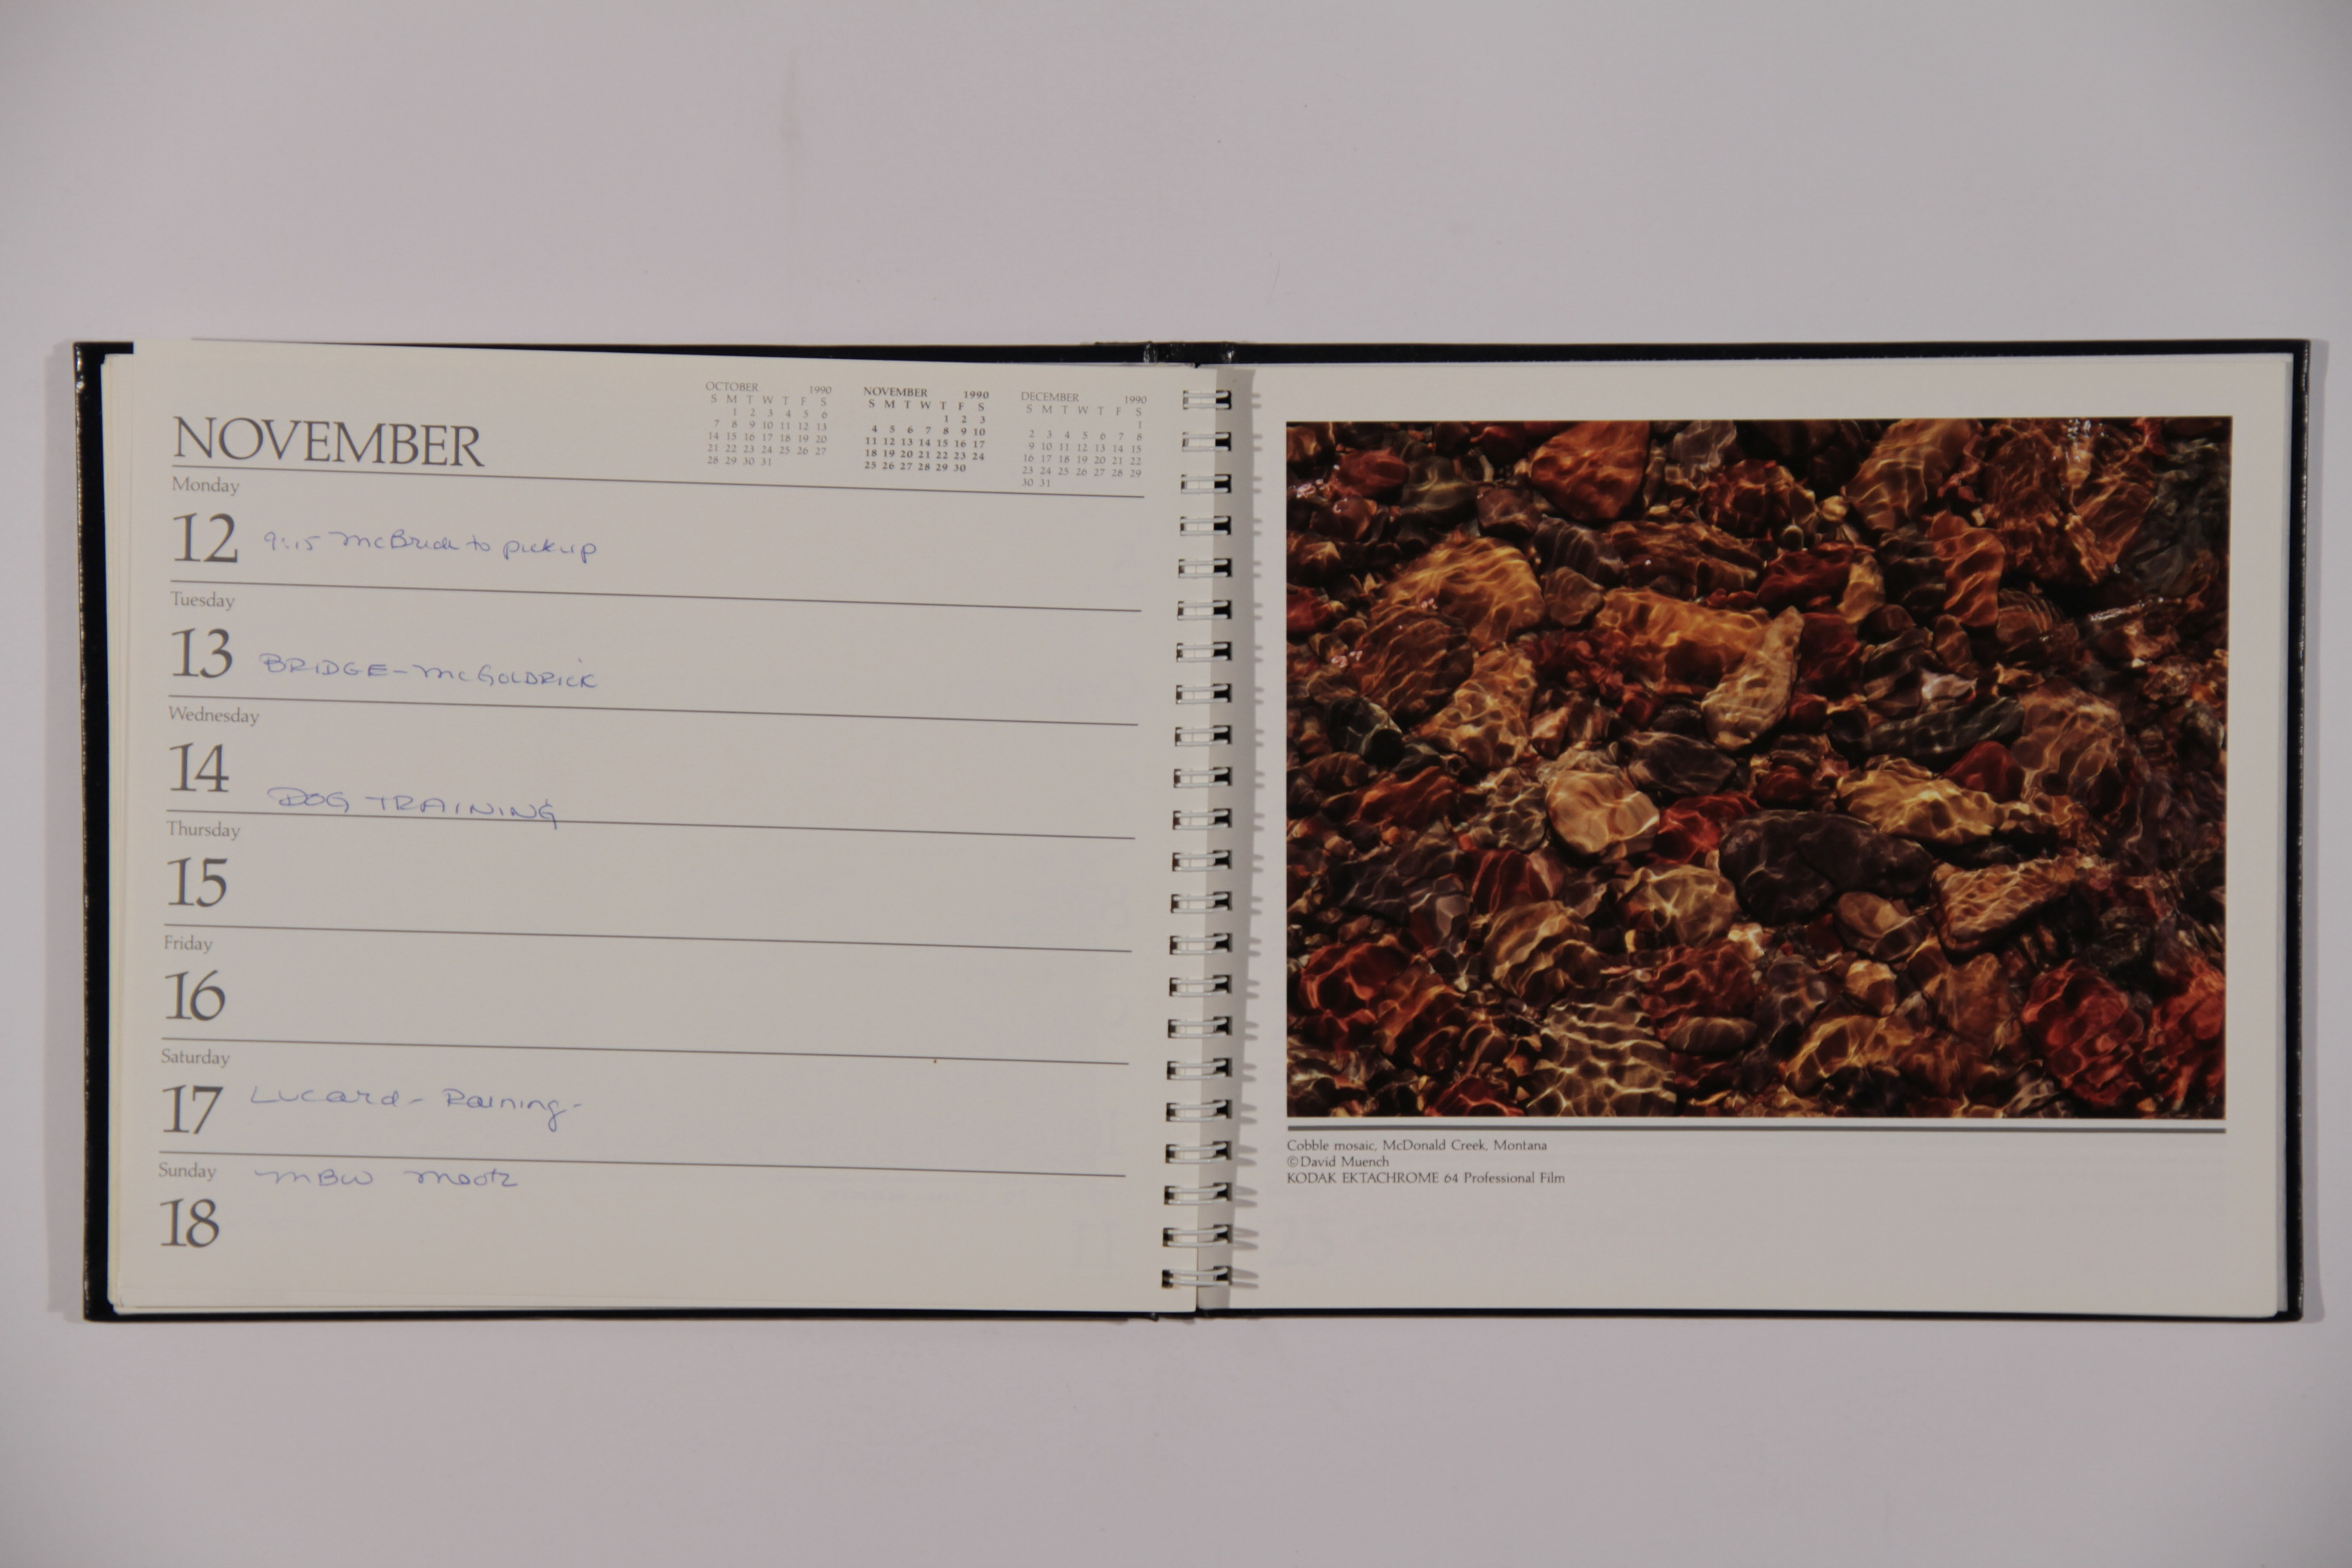 NOVEMBER
OCTOBER 1990
S M T W T F S
1 2 3 4 5 6
7 8 9 10 11 12 13
14 15 16 17 18 19 20
21 22 23 24 25 26 27
28 29 30 31
NOVEMBER 1990
S M T W T F S
1 2 3
4 5 6 7 8 9 10
11 12 13 14 15 16 17
18 19 20 21 22 23 24
25 26 27 28 29 30
DECEMBER 1990
S M T W T F S
1
2 3 4 5 6 7 8
9 10 11 12 13 14 15
16 17 18 19 20 21 22
23 24 25 26 27 28 29
30 31
Monday
12 9:15 McBride to pickup
Tuesday
13 BRIDGE - McGOLDRICK
Wednesday
14 DOG TRAINING
Thursday
15
Friday
16
Saturday
17 Lucard - Raining -
Sunday
MBW
18
Cobble mosaic, McDonald Creek, Montana
©David Muench
KODAK EKTACHROME 64 Professional Film